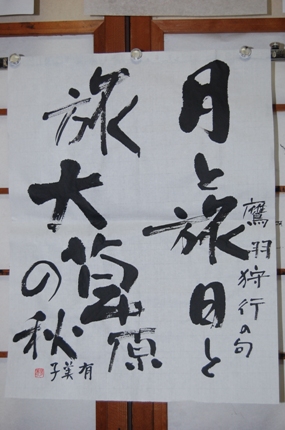 鷹羽狩行の句
月と旅日と
旅大草原
の秋